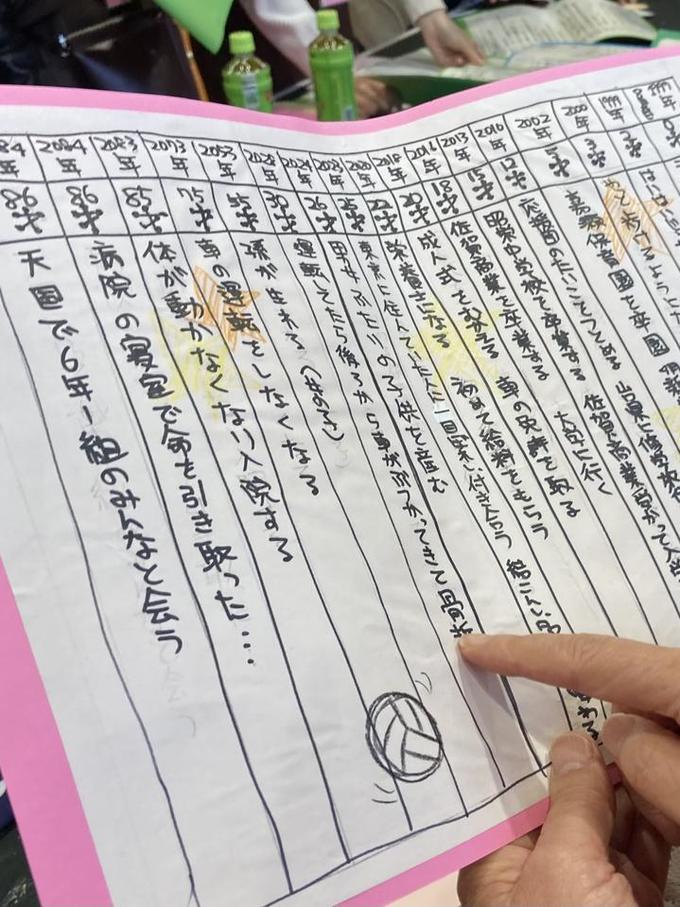 1997年
1999年
2000年
2002年
2010年
2013年
2016年
2018年
2020年
2023年
2024年
2028年
2053年
2073年
2083年
2084年
84年
0才
2才
3才
12才
15才
18才
20才
22才
25才
26才
30才
55才
75才
85才
86才
86才
やっと歩けるように
嘉瀬保育園を卒園
応援団のたいこをつとめる 佐賀商業受かって入学
昭栄中学校を卒業する 大学に行く
佐賀商業を卒業する 車の免許を取る
成人式をむかえる 初めて給料をもらう
栄養士になる
東京に住んでいた人に一目ぼれし付き合う 結こんし
男女ふたりの子供を産む
運転してたら後ろから車がぶつかってきて骨折
孫が生まれる
車の運転をしなくなる
体が動かなくなり入院する
病院の寝室で命を引き取った…
天国で6年1組のみんなと会う